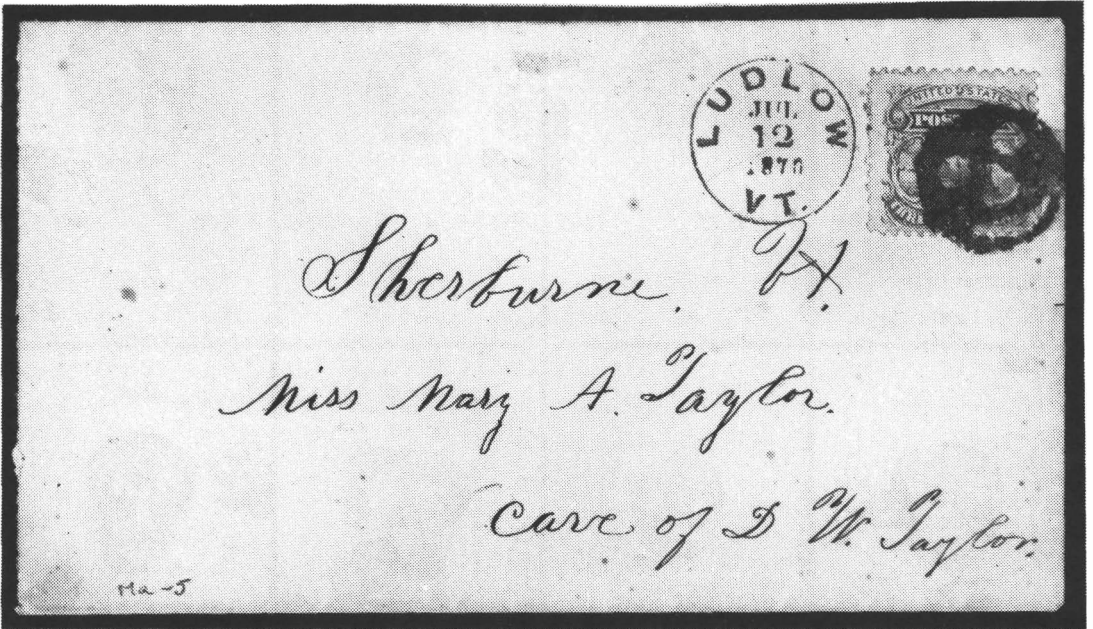 LUDLOW
JUL
12
1870
VT.
UNITED STATES
POS
Sherburne, Vt.
Miss Mary A. Taylor.
Care of D W. Taylor.
Ma-5